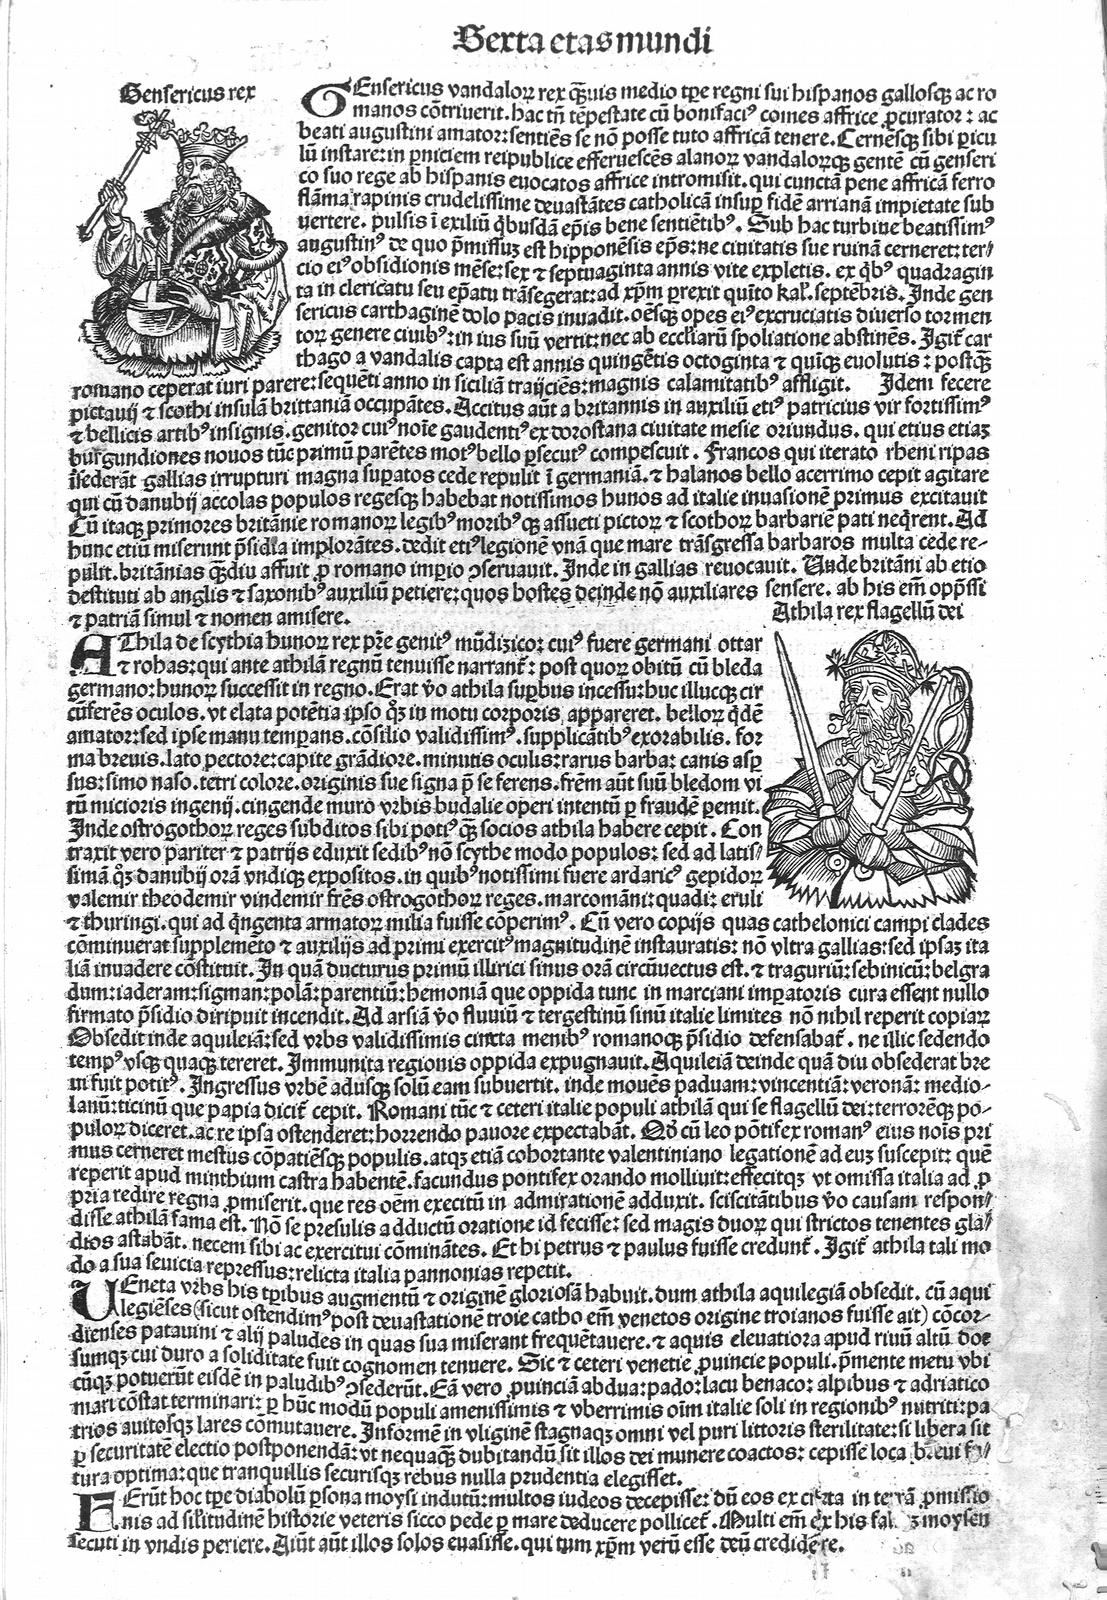 Sexta etas mundi
Gensericus rex
GEnsericus vandaloꝝ rex q̃ꝫuis medio tꝑe regni sui hispanos gallosqꝫ ac ro
manos cõtriuerit. hac tñ tẽpestate cũ bonifaciꝰ comes affrice ꝓcurator: ac
beati augustini amator: sentiẽs se nõ posse tuto affricã tenere. Cernẽsqꝫ sibi ꝑicu
lũ instare: in ꝑniciem reipublice efferuescẽs alanoꝝ vandaloꝝqꝫ gentẽ cũ genseri
co suo rege ab hispanis euocatos affrice intromisit. qui cunctã pene affricã ferro
flãma rapinis crudelissime deuastãtes catholicã insuꝑ fidẽ arrianã impietate sub
uertere. pulsis ĩ exiliũ q̇busdã ep̃is bene sentiẽtibꝰ. Sub hac turbine beatissimꝰ
augustinꝰ de quo p̃missuꝫ est hipponẽsis ep̃s: ne ciuitatis sue ruinã cerneret: ter⸗
cio eiꝰ obsidionis mẽse: sex ⁊ septuaginta annis vite expletis. ex q̇bꝰ quadragin
ta in clericatu seu ep̃atu trãsegerat: ad xp̃m ꝑrexit quĩto kal̃. septẽbris. Inde gen
sericus carthaginẽ dolo pacis inuadit. oẽsqꝫ opes eiꝰ excruciatis diuerso tormen
toꝝ genere ciuibꝰ: in ius suũ vertit: nec ab eccl̃iarũ spoliatione abstinẽs. Igit̃ car
thago a vandalis capta est annis quingẽtis octoginta ⁊ quĩqꝫ euolutis: postq̃ꝫ
romano ceperat iuri parere: sequẽti anno in siciliã traijciẽs: magnis calamitatibꝰ affligit. Idem fecere
pictauij ⁊ scothi insulã brittaniã occupãtes. Accitus aũt a britannis in auxiliũ etiꝰ patricius vir fortissimꝰ
⁊ bellicis artibꝰ insignis. genitor cuiꝰ noĩe gaudentiꝰ ex dorostana ciuitate mesie oriundus. qui etius etiaꝫ
burgundiones nouos tũc primũ parẽtes motꝰ bello ꝑsecutꝰ compescuit. Francos qui iterato rheni ripas
ĩsederãt gallias irrupturi magna suꝑatos cede repulit ĩ germaniã. ⁊ halanos bello acerrimo cepit agitare
qui cũ danubij accolas populos regesqꝫ habebat notissimos hunos ad italie inuasionẽ primus excitauit
Cũ itaqꝫ primores britãnie romanoꝝ legibꝰ moribꝰqꝫ assueti pictoꝝ ⁊ scothoꝝ barbariẽ pati neq̇rent. Ad
hunc etiũ miserunt p̃sidia implorãtes. dedit etiꝰ legionẽ vnã que mare trãsgressa barbaros multa cede re⸗
pulit. britãnias q̃ꝫdiu affuit ꝓ romano imꝑio ꝯseruauit. Inde in gallias reuocauit. Unde britãni ab etio
destituti ab anglis ⁊ saxonibꝰ auxiliũ petiere: quos hostes deinde nõ auxiliares sensere. ab his em̃ opp̃ssi
⁊ patriã simul ⁊ nomen amisere.
Athila rex flagellũ dei
AThila de scythia hunoꝝ rex pr̃e genitꝰ mũdizico: cuiꝰ fuere germani ottar
⁊ rohas: qui ante athilã regnũ tenuisse narrant̃: post quoꝝ obitũ cũ bleda
germano: hunoꝝ successit in regno. Erat v̊o athila suꝑbus incessu: huc illucqꝫ cir
cũferẽs oculos. vt elata potẽtia ipso qꝫ in motu corporis appareret. belloꝝ q̇dẽ
amator: sed ipse manu temꝑans. cõsilio validissimꝰ. supplicãtibꝰ exorabilis. for
ma breuis. lato pectore: capite grãdiore. minutis oculis: rarus barba: canis asꝑ
sus: simo naso. tetri colore. originis sue signa p̃ se ferens. fr̃em aũt suũ bledom vi
rũ micioris ingenij. cingende muro vrbis budalie operi intentũ ꝑ fraudẽ ꝑemit.
Inde ostrogothoꝝ reges subditos sibi potiꝰ q̃ꝫ socios athila habere cepit. Con
traxit vero pariter ⁊ patrijs eduxit sedibꝰ nõ scythe modo populos: sed ad latis⸗
simã qꝫ danubij orã vndiqꝫ expositos. in quibꝰ notissimi fuere ardaricꝰ gepidoꝝ
valemir theodemir vindemir fr̃es ostrogothoꝝ reges. marcomãni: quadi: eruli
⁊ thuringi. qui ad q̇ngenta armatoꝝ milia fuisse cõperimꝰ. Cũ vero copijs quas cathelonici campi clades
cõminuerat supplemẽto ⁊ auxilijs ad primi exercitꝰ magnitudinẽ instauratis: nõ vltra gallias: sed ipsaꝫ ita
liã inuadere cõstituit. In quã ducturus primũ illirici sinus orã circũuectus est. ⁊ traguriũ: sebinicũ: belgra
dum: iaderam: sigman: polã: parentiũ: hemoniã que oppida tunc in marciani imꝑatoris cura essent nullo
firmato p̃sidio diripuit incendit. Ad arsiã v̊o fluuiũ ⁊ tergestinũ sinũ italie limites nõ nihil reperit copiaꝝ
Obsedit inde aquileiã: sed vrbs validissimis cincta menibꝰ romanoqꝫ p̃sidio defensabat̃. ne illic sedendo
tempꝰ vsqꝫ quaqꝫ tereret. Immunita regionis oppida expugnauit. Aquileiã deinde quã diu obsederat bre
ui fuit potitꝰ. Ingressus vrbẽ adusqꝫ solũ eam subuertit. inde mouẽs paduam: vincentiã: veronã: medio⸗
lanũ: ticinũ que papia dicit̃ cepit. Romani tũc ⁊ ceteri italie populi athilã qui se flagellũ dei: terrorẽqꝫ po⸗
puloꝝ diceret. ac re ipsa ostenderet: horrendo pauore expectabãt. Qd̃ cũ leo põtifex romanꝰ eius noĩs pri
mus cerneret mestus cõpatiẽsqꝫ populis. atqꝫ etiã cohortante valentiniano legationẽ ad euꝫ suscepit: quẽ
reperit apud minthium castra habentẽ. facundus pontifex orando molliuit: effecitqꝫ vt omissa italia ad ꝓ
pria redire regna ꝓmiserit. que res oẽm execitũ in admirationẽ adduxit. sciscitãtibus v̊o causam respon⸗
disse athilã fama est. Nõ se presulis adductũ oratione id fecisse: sed magis duoꝝ qui strictos tenentes gla⸗
dios astabãt. necem sibi ac exercitui cõminãtes. Et hi petrus ⁊ paulus fuisse credunt̃. Igit̃ athila tali mo
do a sua seuicia repressus: relicta italia pannonias repetit.
UEneta vrbs his tꝑibus augmentũ ⁊ originẽ gloriosã habuit. dum athila aquilegiã obsedit. cũ aqui
legiẽses (sicut ostendimꝰ post deuastationẽ troie catho em̃ venetos origine troianos fuisse ait) cõcor⸗
dienses patauini ⁊ alij paludes in quas sua miserant frequẽtauere. ⁊ aquis eleuatiora apud riuũ altũ doe
sumqꝫ cui duro a soliditate fuit cognomen tenuere. Sic ⁊ ceteri venetie ꝓuincie populi. p̃mente metu vbi
cũqꝫ potuerũt eisdẽ in paludibꝰ ꝯsederũt. Eã vero ꝓuinciã abdua: pado: lacu benaco: alpibus ⁊ adriatico
mari cõstat terminari: ꝑ hũc modũ populi amenissimis ⁊ vberrimis oĩm italie soli in regionibꝰ nutriti: pa
trios auitosqꝫ lares cõmutauere. Informẽ in vliginẽ stagnaqꝫ omni vel puri littoris sterilitate: si libera sit
ꝓ securitate electio postponendã: vt nequaqꝫ dubitandũ sit illos dei munere coactos: cepisse loca breui fu⸗
tura optima: que tranquillis securisqꝫ rebus nulla prudentia elegisset.
FErũt hoc tꝑe diabolũ ꝑsona moysi indutũ: multos iudeos decepisse: dũ eos ex creta in terrã ꝓmissio
nis ad sil̃itudinẽ historie veteris sicco pede ꝑ mare deducere pollicet̃. Multi em̃ ex his moysen
secuti in vndis periere. Aiũt aũt illos solos euasisse. qui tum xp̃m verũ esse deũ credidere.